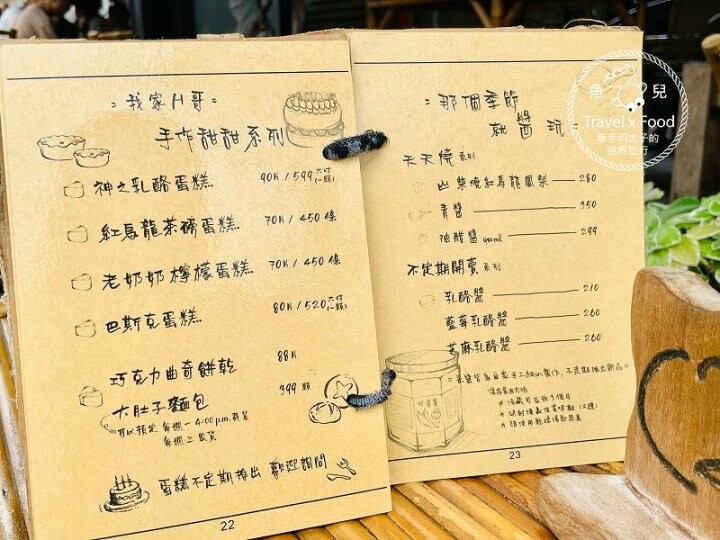 我家H哥
手作甜甜系列
神之乳酪蛋糕 90元/599 六吋(一顆)
紅烏龍茶磅蛋糕 70元/450 條
老奶奶檸檬蛋糕 70元/450 條
巴斯克蛋糕 80元/520 六吋(一顆)
巧克力曲奇餅乾 88元
大肚子麵包 399 顆
可以預定 每週一 4:00p.m.前
每週三出貨
蛋糕不定期推出 歡迎詢問
22
那個季節
就醬玩
天天燒系列
山柴燒紅烏龍鳳梨 280
青醬 350
油醋醬 290
不定期開賣系列
乳酪醬 210
藍莓乳酪醬 260
芝麻乳酪醬 260
23
魚兒
Travel x Food
牽手明太子的
視界旅行